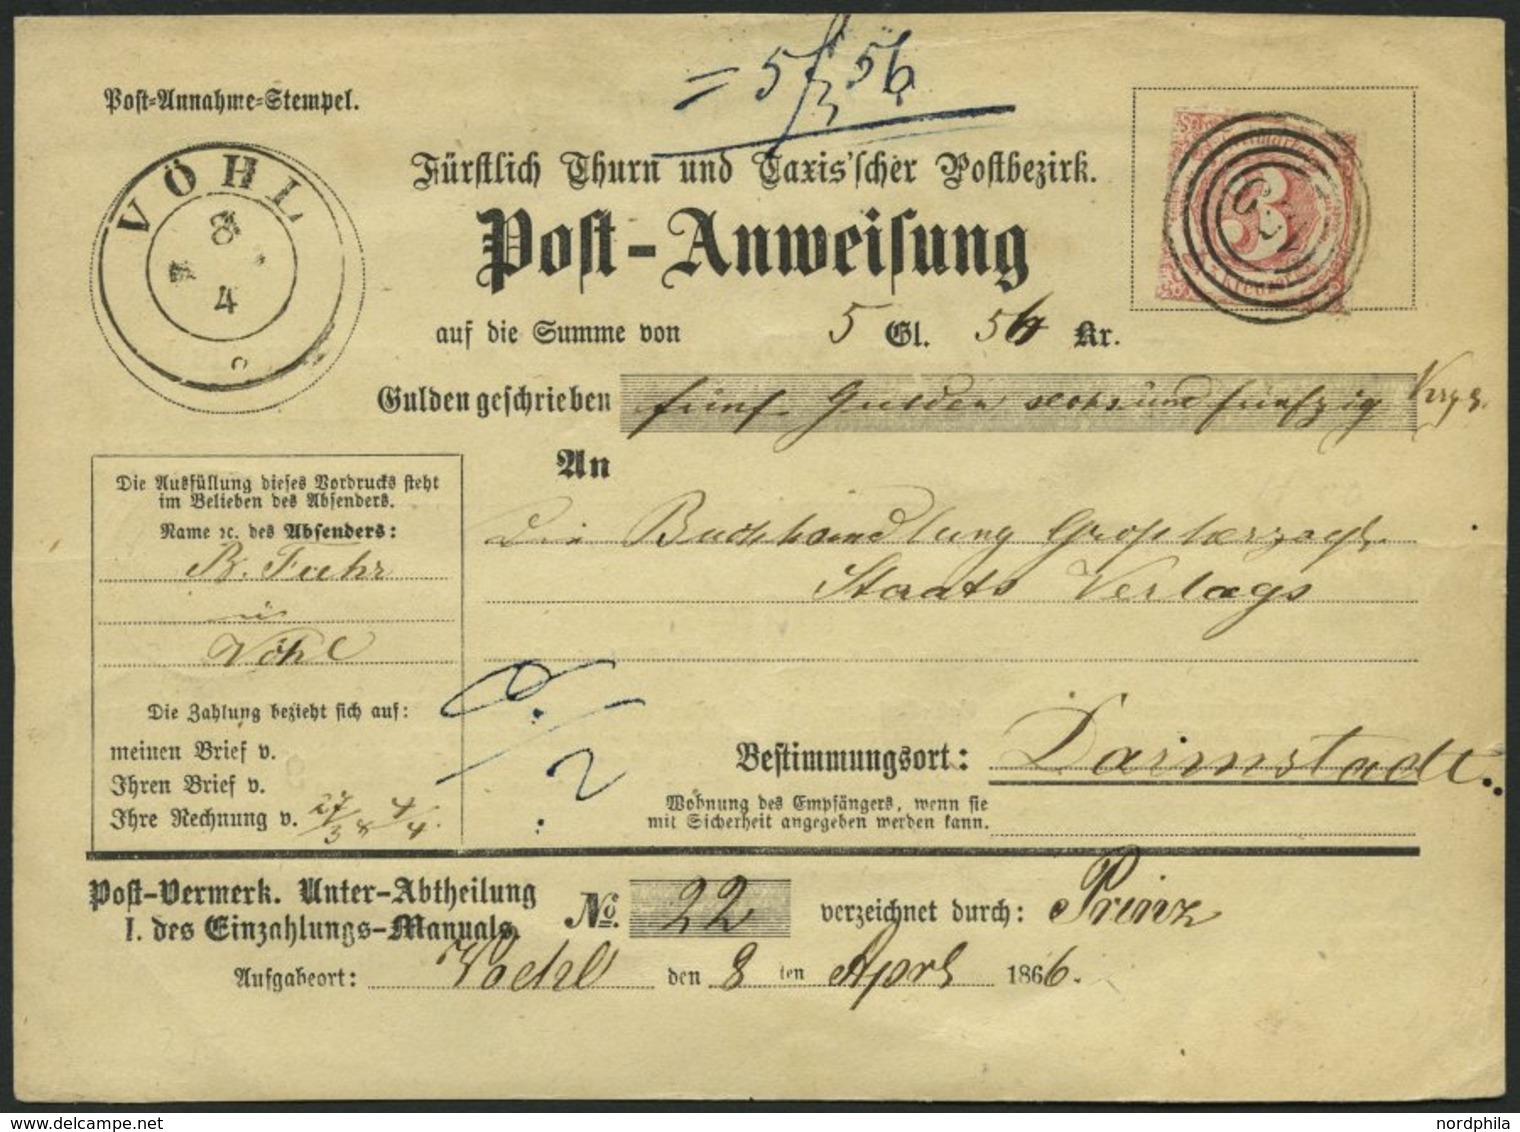 = 5 f 56
Post-Annahme-Stempel.
VÖHL
8
4
Fürstlich Thurn und Taxis'scher Postbezirk.
3
Post-Anweisung
auf die Summe von 5 Gl. 56 Kr.
Gulden geschrieben fünf Gulden sechs und fünfzig
An
Die Ausfüllung dieses Vordrucks steht
im Belieben des Absenders.
Name ꝛc. des Absenders:
B. Fuhr
in
Vöhl
Die Buchhandlung Großherzogl.
Staats Verlags
Die Zahlung bezieht sich auf:
meinen Brief v.
Ihren Brief v.
Ihre Rechnung v. 27/3 & 4/4.
Bestimmungsort: Darmstadt
Wohnung des Empfängers, wenn sie
mit Sicherheit angegeben werden kann.
Post-Vermerk. Unter-Abtheilung
I. des Einzahlungs-Manuals.
No. 22 verzeichnet durch: Prinz
Aufgabeort: Voehl den 8 ten April 1866.
nordphila